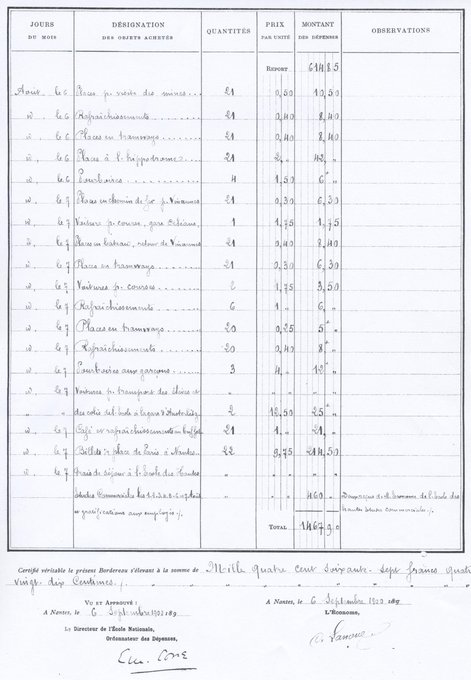 JOURS DU MOIS DÉSIGNATION DES OBJETS ACHETÉS QUANTITÉS PRIX PAR UNITÉ MONTANT DES DÉPENSES OBSERVATIONS
REPORT 614 85
Août le 6 Places p. visite des mines 21 0,50 10,50
d. le 6 Rafraîchissements 21 0,40 8,40
d. le 6 Places en tramways 21 0,40 8,40
d. le 6 Places à l'hippodrome 21 2,,, 42 ,,
d. le 6 Pourboires 4 1,50 6 ,,
d. le 7 Places en chemin de fer p. Vincennes 21 0,30 6,30
d. le 7 Voiture p. course, gare Orléans 1 1,75 1,75
d. le 7 Places en bateau, retour de Vincennes 21 0,40 8,40
d. le 7 Places en tramways 21 0,30 6,30
d. le 7 Voitures p. courses 2 1,75 3,50
d. le 7 Rafraîchissements 6 1,,, 6 ,,
d. le 7 Places en tramways 20 0,25 5 ,,
d. le 7 Rafraîchissements 20 0,40 8 ,,
d. le 7 Pourboires aux garçons 3 4,,, 12 ,,
d. le 7 Voitures p. transport des élèves et
,, ,, des colis de l'école à la gare d'Austerlitz 2 12,50 25 ,,
d. le 7 Café et rafraîchissements au buffet 21 1,,, 21 ,,
d. le 7 Billets de place de Paris à Nantes 22 9,75 214,50
d. le 7 frais de séjour à l'Ecole des Hautes
Etudes Commerciales les 1. 2. 3. 4. 5. 6. 7 Août 460 ,, D'après reçu de M. l'économe de l'école des
et gratifications aux employés ./. hautes études commerciales ./.
TOTAL 1467 90
Certifié véritable le présent Bordereau s'élevant à la somme de Mille quatre cent soixante-sept francs quatre
vingt-dix Centimes ./.
VU ET APPROUVÉ :
A Nantes, le 6 Septembre 1900 189
A Nantes, le 6 Septembre 1900 189
L'Économe,
Le Directeur de l'École Nationale,
Ordonnateur des Dépenses,